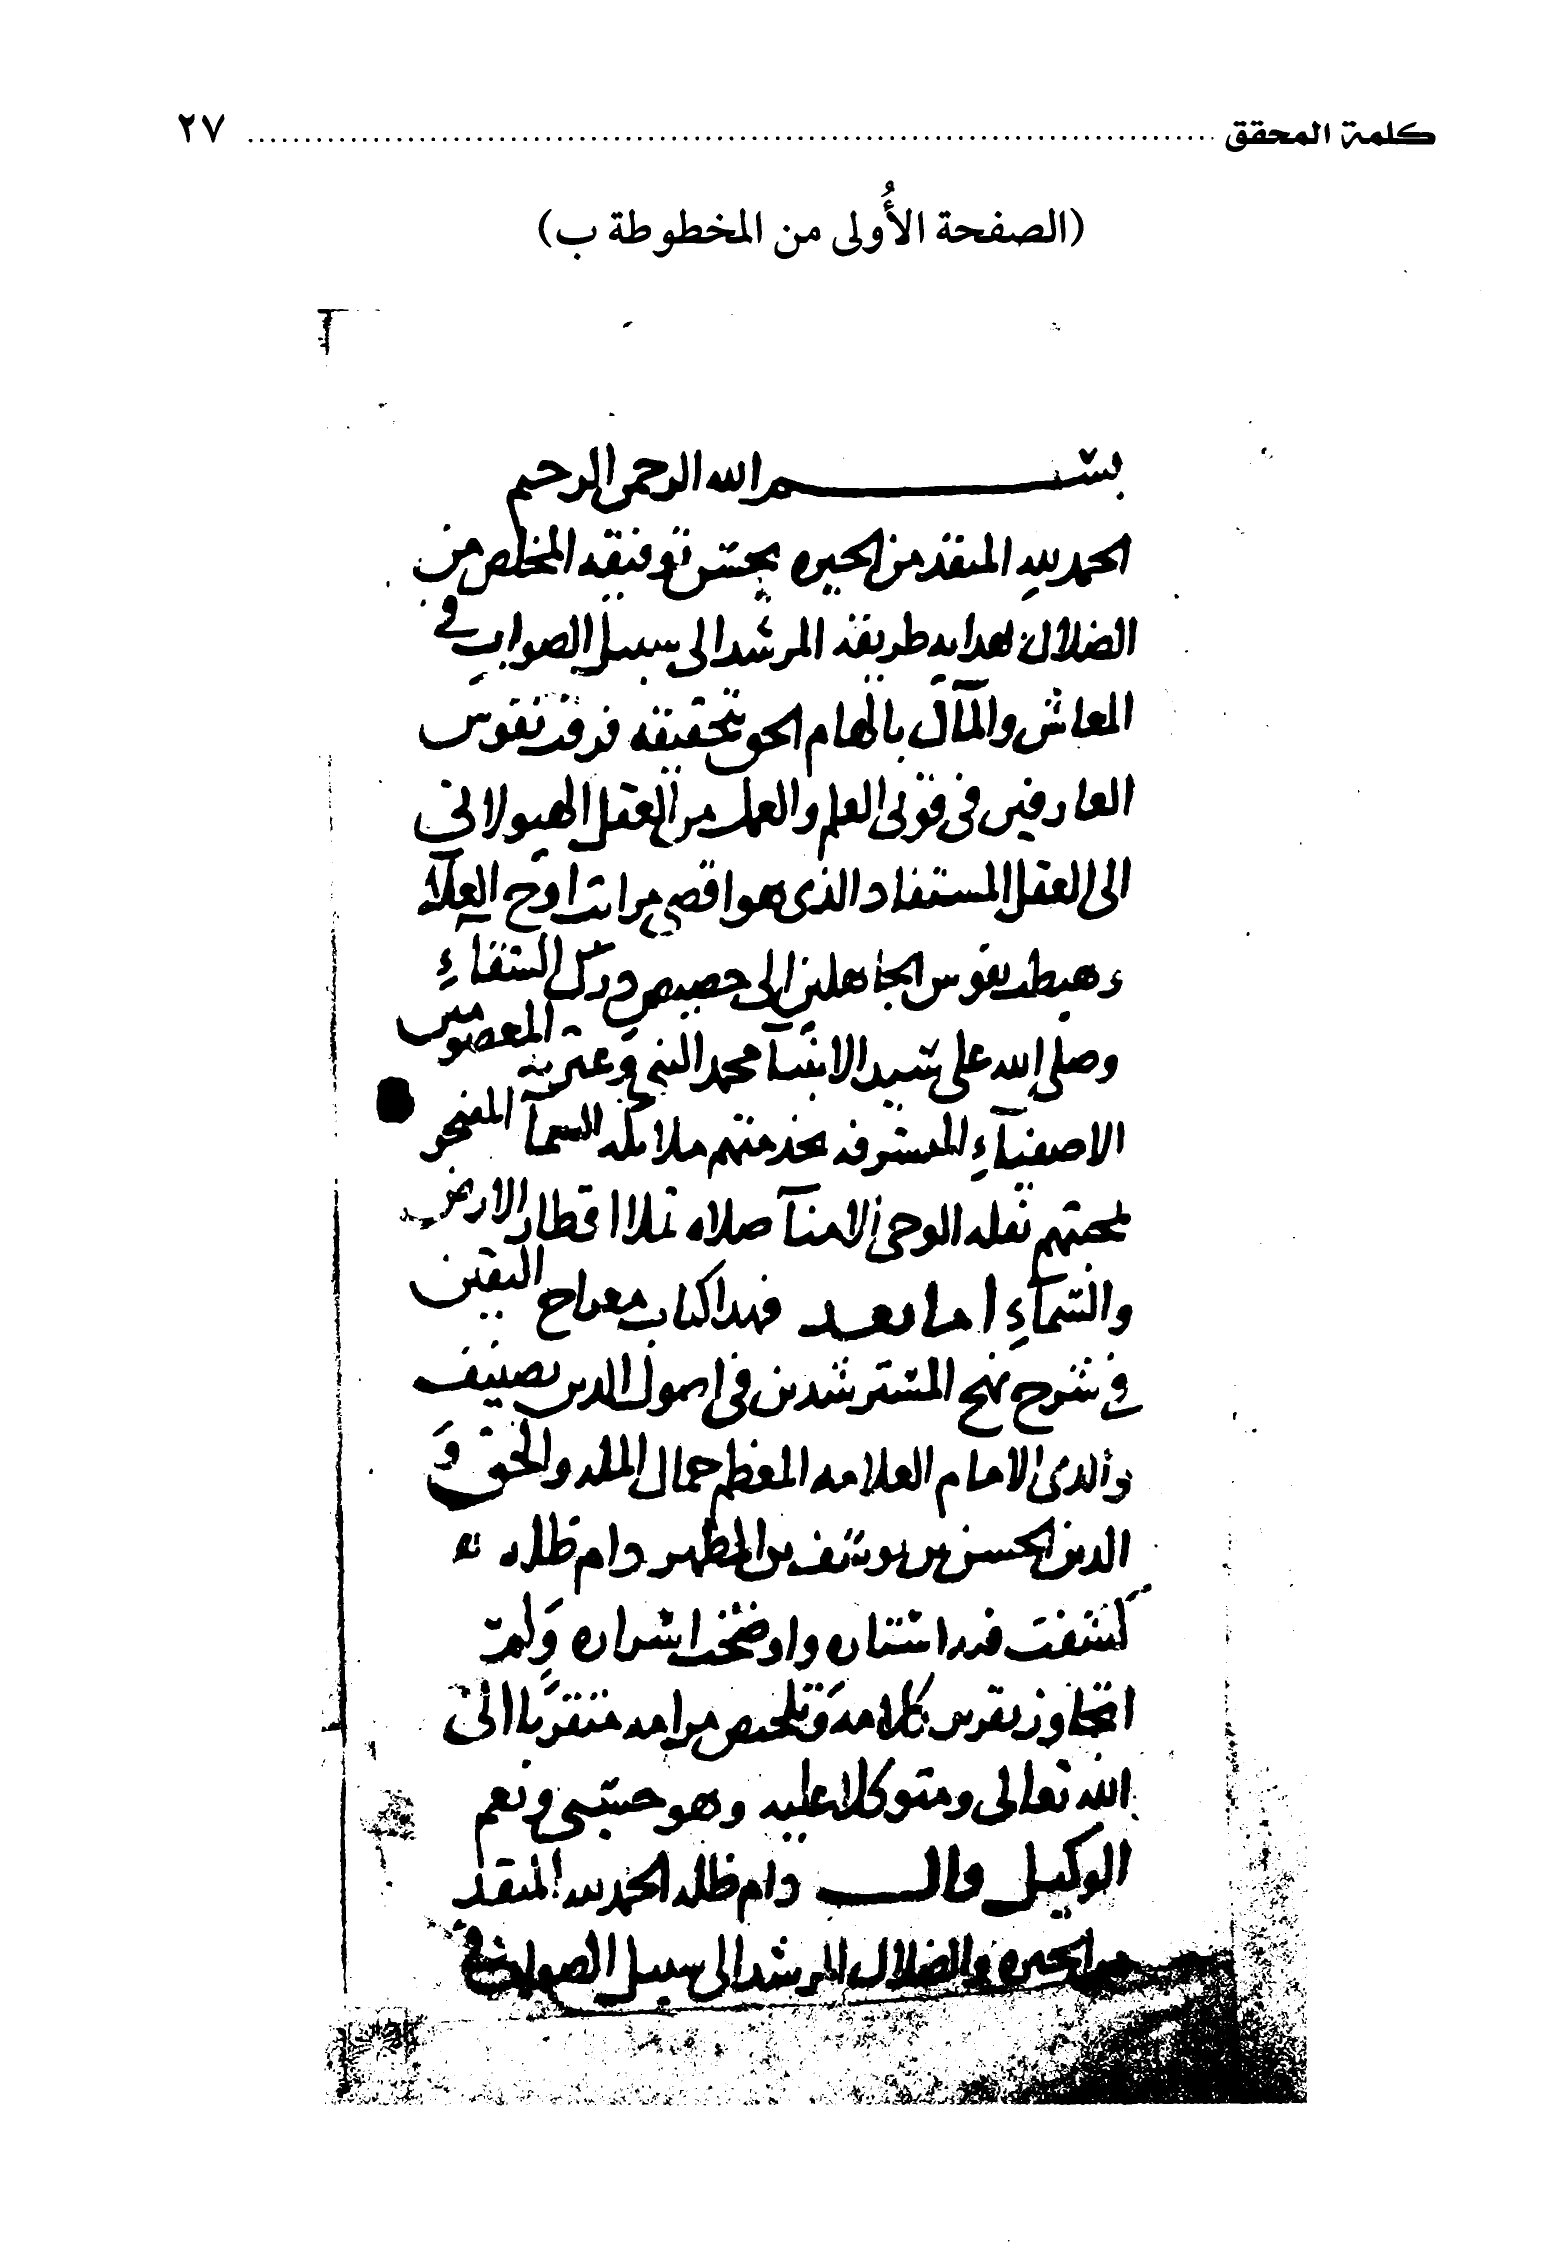 كلمة المحقق ........................................ ٢٧
(الصفحة الأُولى من المخطوطة ب)
بسم الله الرحمن الرحيم
الحمد لله المنقذ من الحيره بحسن توفيقه المخلص من
الضلال بهدايه طريقه المرشد الى سبيل الصواب في
المعاش والمآل بالهام الحق بتحقيقه فرقت نفوس
العارفين في قوتى العلم والعمل من العقل الهيولانى
الى العقل المستفاد الذى هو اقصى مراتب اوج العلآء
وهبطت نفوس الجاهلين الى حضيض درك الشقاءِ
وصلى الله على سيد الانبيآ محمد النبى وعترته المعصومين
الاصفيآءِ المتشرفه بخدمتهم ملائكه السمآ المفتخر
بمحبتهم نقله الوحى الامنآ صلاه تملا اقطار الارض
والسمآءِ اما بعد فهذا كتاب معراج اليقين
في شرح نهج المسترشدين فى اصول الدين تصنيف
والدى الامام العلامه المعظم جمال المله والحق وَ
الدين الحسن بن يوسف بن المطهر دام ظله
كشفت فيه استتاره واوضحت اسراره وَلم
اتجاوز تقرير كلامه وَتلخيص مرامه متقربا الى
الله تعالى ومتوكلا عليه وهو حسبى ونعم
الوكيل قال دام ظله الحمد لله المنقذ
من الحيره والضلال المرشد الى سبيل الصواب في